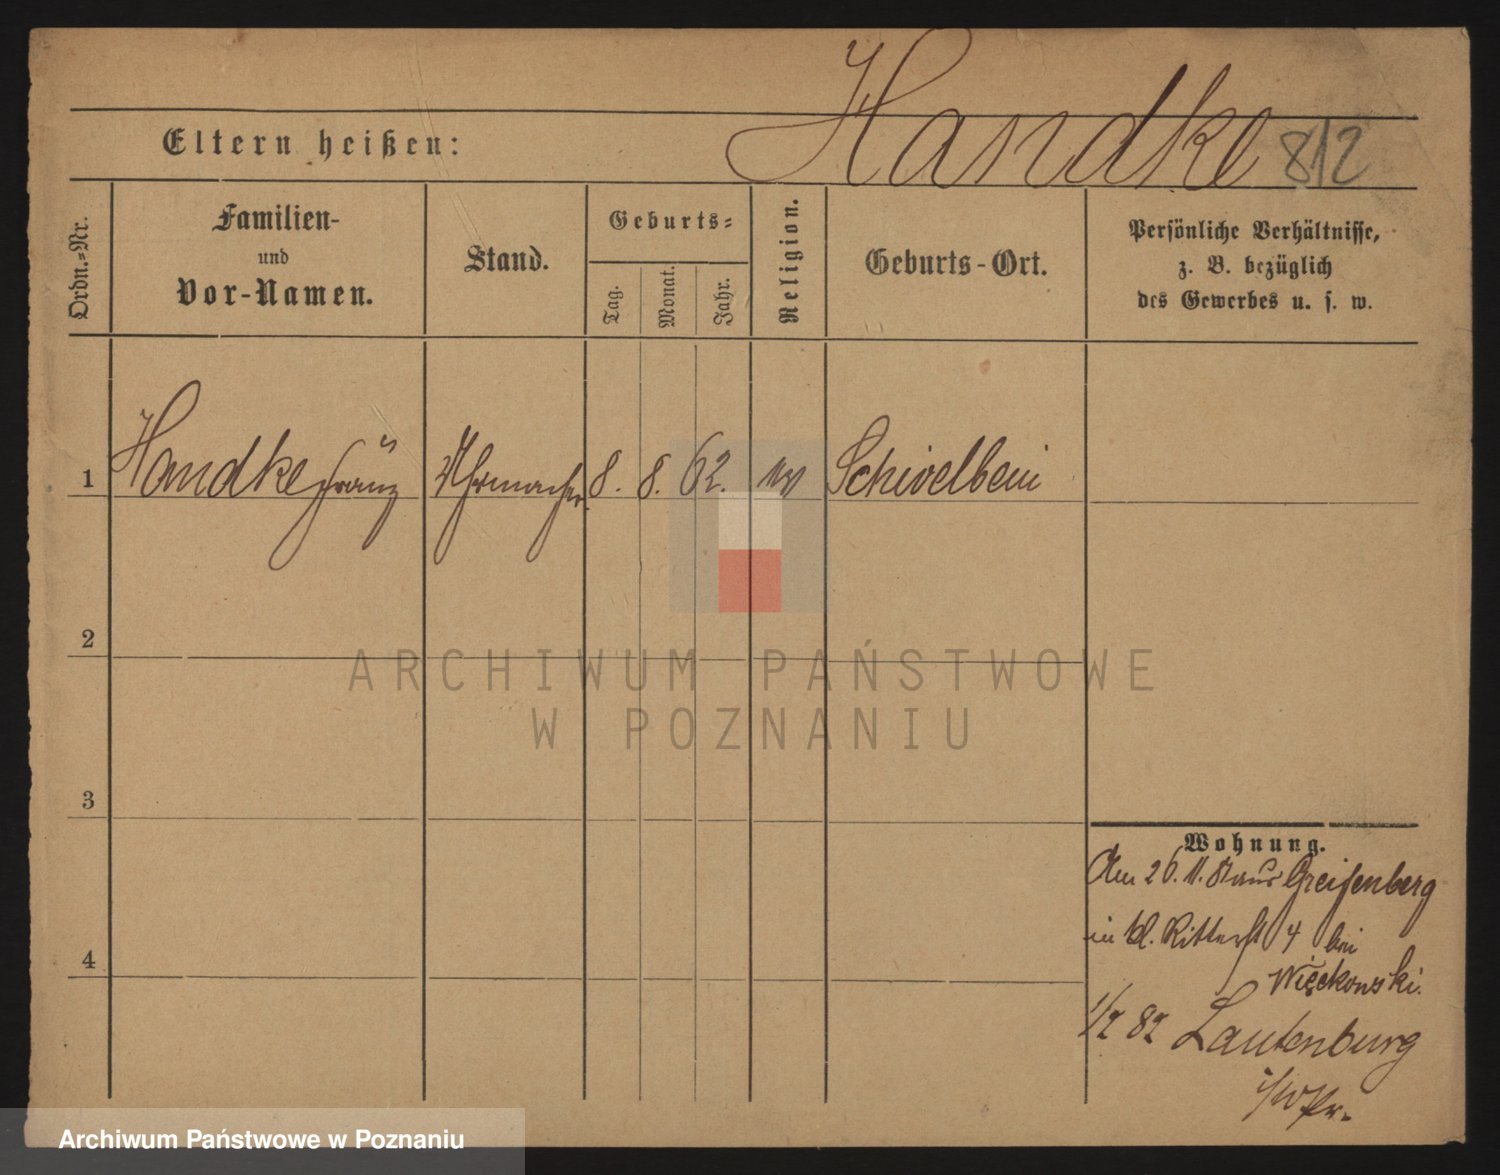 Handke 812
Eltern heißen:
Ordn.-Nr.
Familien-
und
Vor-Namen.
Stand.
Geburts-
Tag.
Monat.
Jahr.
Religion.
Geburts-Ort.
Persönliche Verhältnisse,
z. B. bezüglich
des Gewerbes u. s. w.
1 Handke Franz Uhrmacher 8. 8. 62. Schivelbein
2
3
4
Wohnung.
Am 26.11.81 aus Greifenberg
in kl. Ritterst 4 bei
Więckowski.
1/2 82 Lautenburg
i/W Pr.
ARCHIWUM PAŃSTWOWE
W POZNANIU
Archiwum Państwowe w Poznaniu